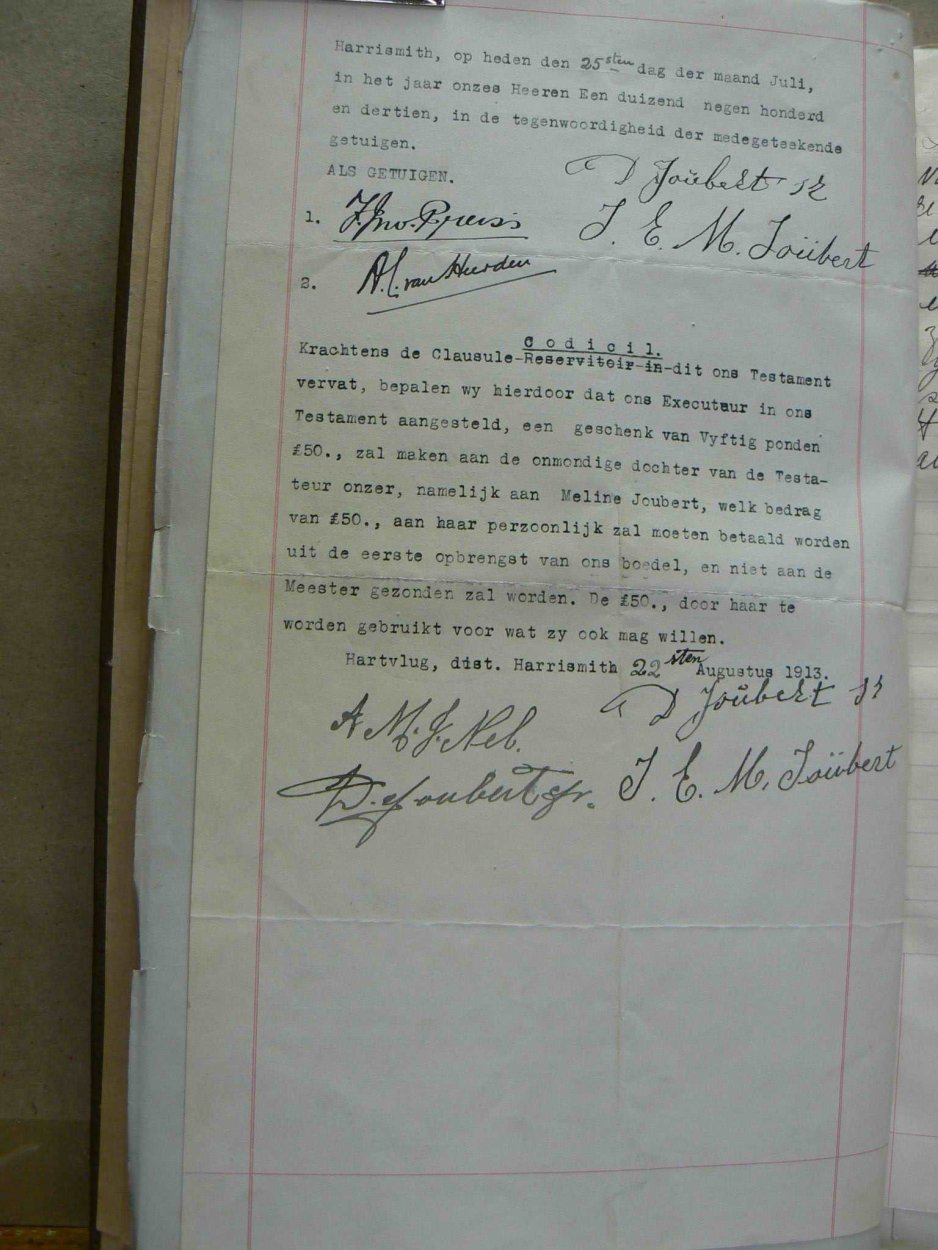 Harrismith, op heden den 25sten dag der maand Juli,
in het jaar onzes Heeren Een duizend negen honderd
en dertien, in de tegenwoordigheid der medegeteekende
getuigen.
ALS GETUIGEN.
D Joübert sr
1.
J. E. M. Joübert
2. A.C. van Heerden
Codicil.
Krachtens de Clausule-Reservitoir-in-dit ons Testament
vervat, bepalen wy hierdoor dat ons Executeur in ons
Testament aangesteld, een geschenk van Vyftig ponden
£50., zal maken aan de onmondige dochter van de Testa-
teur onzer, namelijk aan Meline Joubert, welk bedrag
van £50., aan haar perzoonlijk zal moeten betaald worden
uit de eerste opbrengst van ons boedel, en niet aan de
Meester gezonden zal worden. De £50., door haar te
worden gebruikt voor wat zy ook mag willen.
Hartvlug, dist. Harrismith 22sten Augustus 1913.
D Joübert sr
A. M. J. Nel.
J. E. M. Joübert
D. Joubert jr.